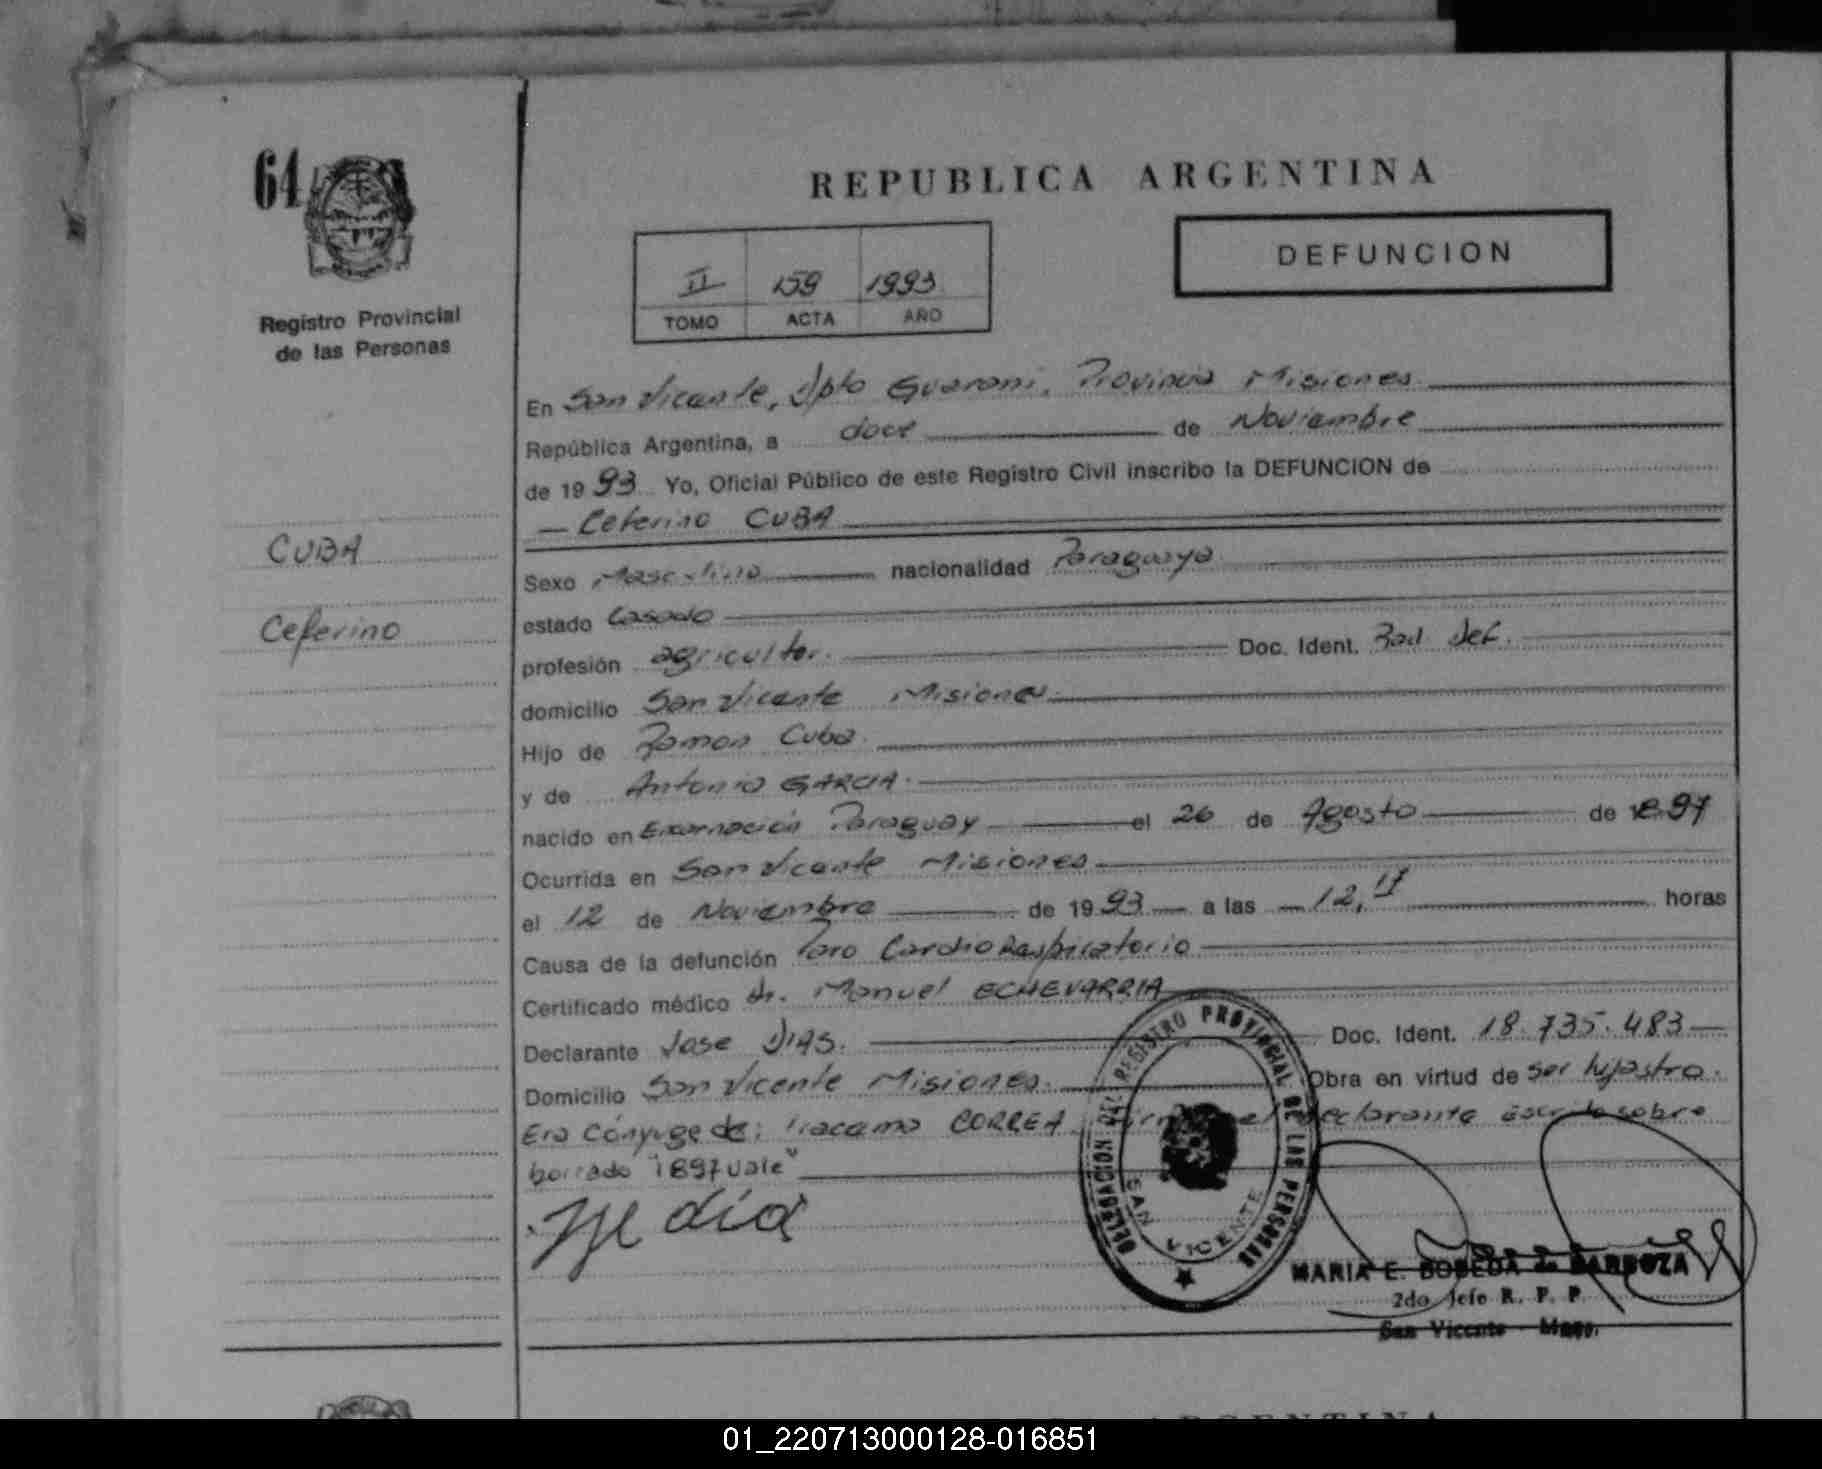 64
REPUBLICA ARGENTINA
DEFUNCION
II 159 1993
TOMO ACTA AÑO
Registro Provincial
de las Personas
En San Vicente, Dpto Guarani, Provincia Misiones
República Argentina, a doce de Noviembre
de 1993 Yo, Oficial Público de este Registro Civil inscribo la DEFUNCION de
— Ceferino CUBA
CUBA
Ceferino
Sexo Masculino nacionalidad Paraguaya
estado Casado
profesión agricultor. Doc. Ident. Rad Def.
domicilio San Vicente Misiones
Hijo de Ramon Cuba.
y de Antonia GARCIA.
nacido en Encarnación Paraguay el 26 de Agosto de 1897
Ocurrida en San Vicente Misiones
el 12 de Noviembre de 1993 a las 12,17 horas
Causa de la defunción Paro Cardio Respiratorio
Certificado médico dr. Manuel ECHEVARRIA
Declarante Jose DIAS. Doc. Ident. 18.735.483
Domicilio San Vicente Misiones. Obra en virtud de ser hijastro.
Era Cónyuge de: Iracama CORREA. Firma el declarante Escrito sobre
borrado "1897 vale"
DELEGACION DEL REGISTRO PROVINCIAL DE LAS PERSONAS
SAN VICENTE
MARIA E. BOBEDA de BARBOZA
2do Jefe R. P. P.
San Vicente - Mnes.
ARGENTINA
01_220713000128-016851